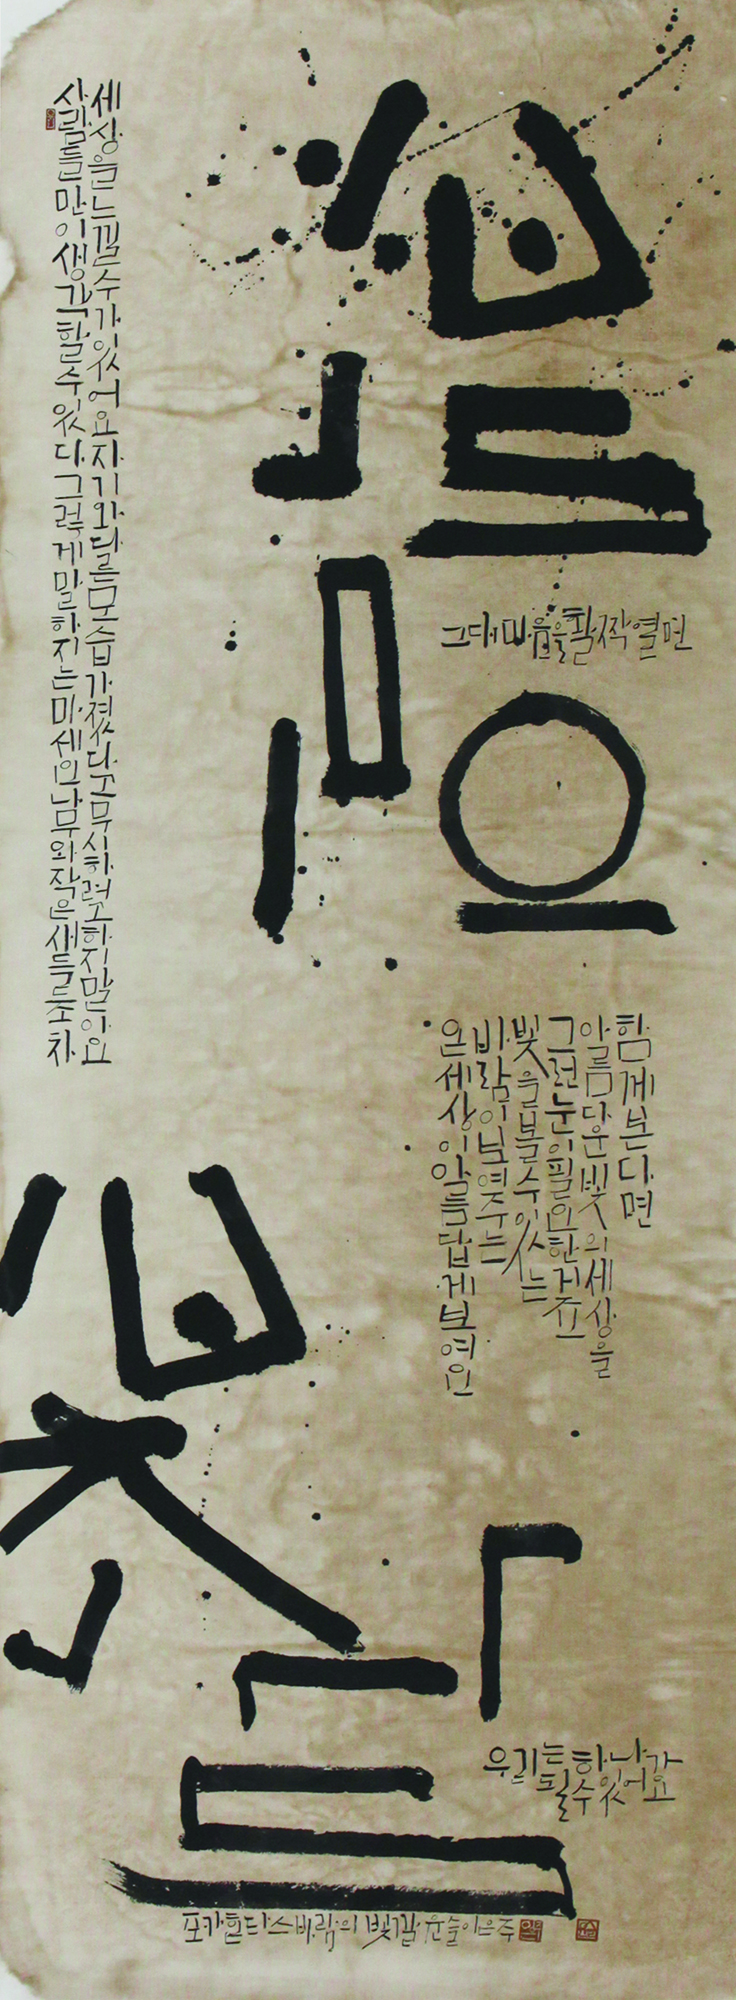 사람들만이 생각할 수 있다 그렇게 말하지는 마세요 나무와 작은 새들조차
세상을 느낄 수가 있어요 자기와 다른 모습 가졌다고 무시하려고 하지 말아요
바람의
그대 마음을 활짝 열면
온 세상이 아름답게 보여요
바람이 보여주는
빛을 볼 수 있는
그런 눈이 필요한 거죠
아름다운 빛의 세상을
함께 본다면
빛깔
우리는 하나가
될 수 있어요
포카혼타스 바람의 빛깔 윤슬 이은주